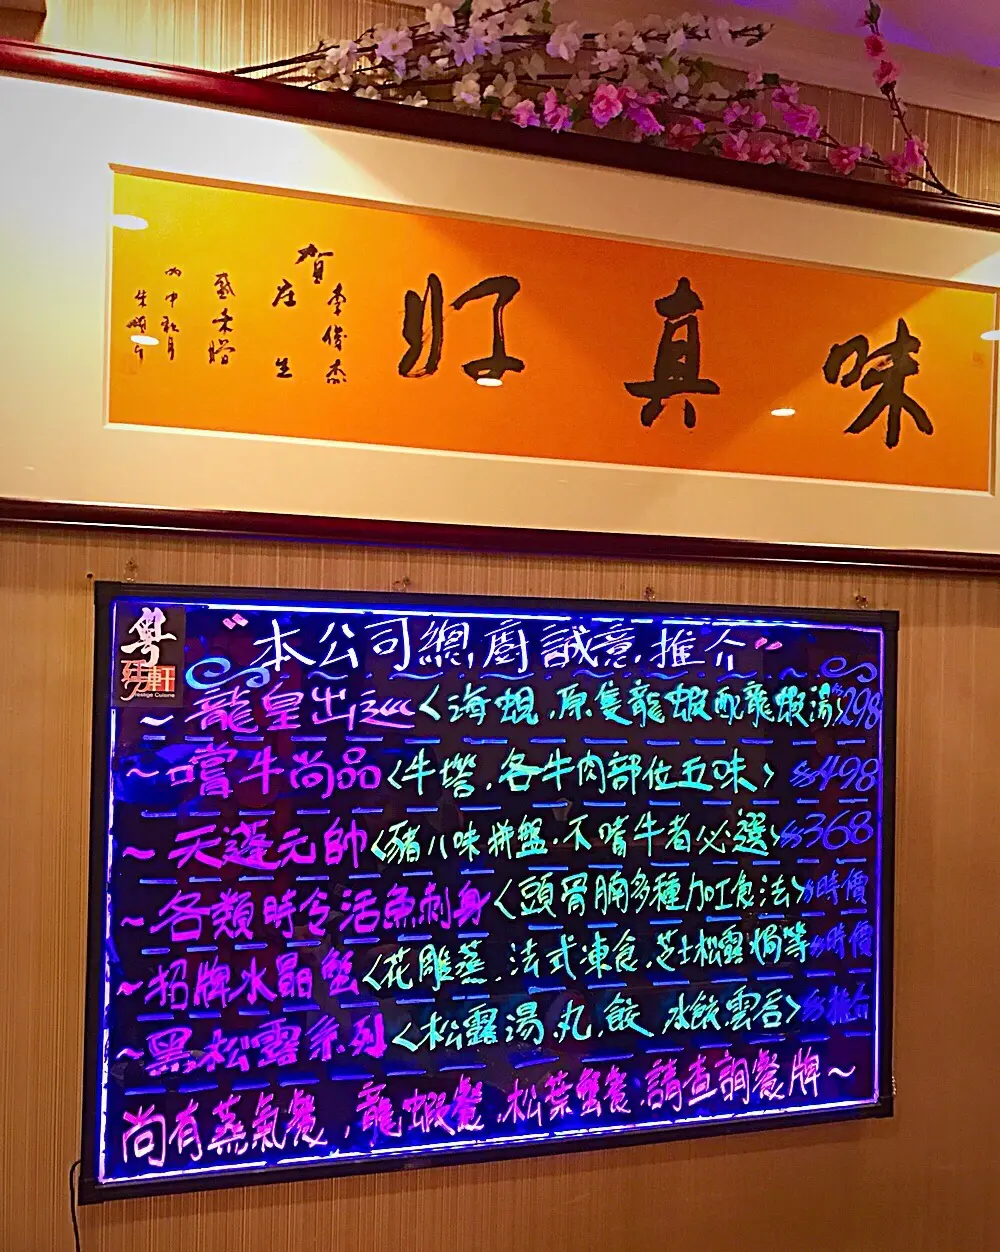 味真好
李俊杰
賀庄生
盛采贈
丙申秋月
粵
軒
Prestige Cuisine
"本公司總廚誠意推介"
~龍皇出巡<海蜆.原隻龍蝦配龍蝦湯>$298
~嚐牛尚品<牛㙮.各牛肉部位五味>$498
~天蓬元帥<豬八味拼盤.不嗜牛者必選>$368
~各類時令活魚刺身<頭骨腩多種加工食法>$時價
~招牌水晶蟹<花雕蒸.法式凍食.芝士松露焗等$時價
~黑松露系列<松露湯.丸.餃 水餃雲吞>$推介
尚有蒸氣餐.龍蝦餐.松葉蟹餐.請查詢餐牌~